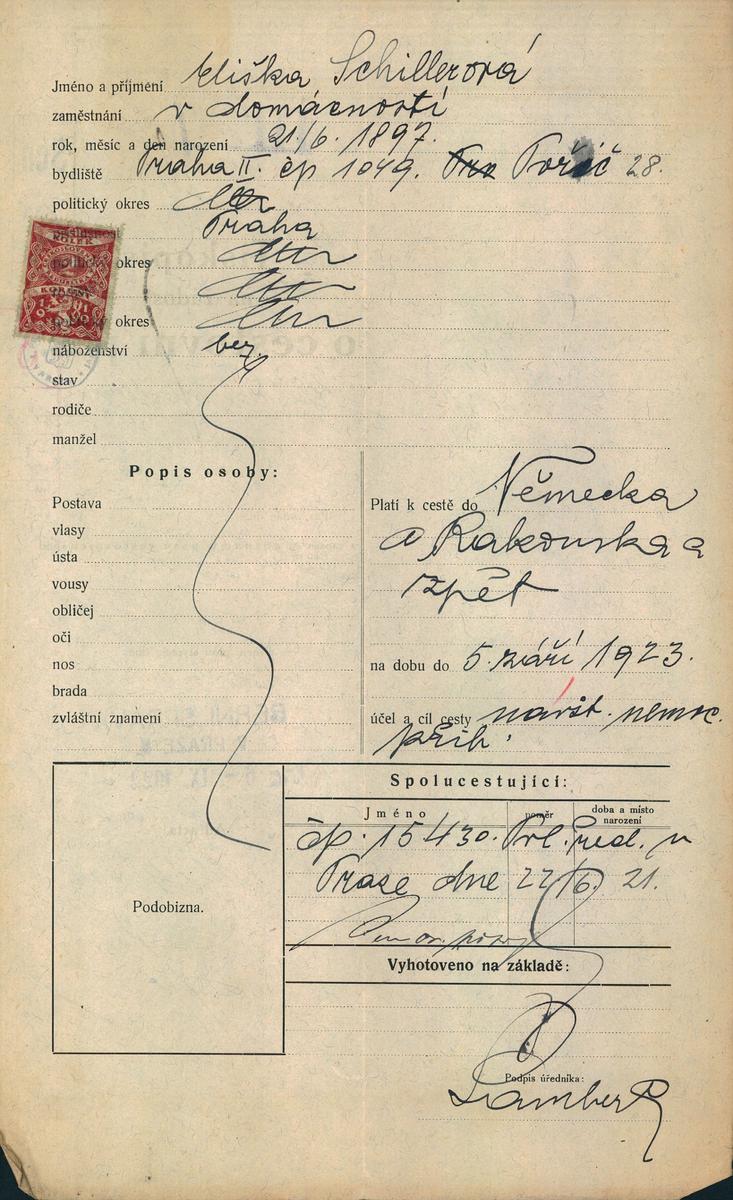 Jméno a příjmení Eliška Schillerová
zaměstnání v domácnosti
rok, měsíc a den narození 21/6. 1897.
bydliště Praha II. čp 1049. Poříč 28.
politický okres
příslušnost Praha
politický okres
politický okres
náboženství bez
stav
rodiče
manžel
KOLEK
Popis osoby:
Postava
vlasy
ústa
vousy
obličej
oči
nos
brada
zvláštní znamení
Platí k cestě do Německa
a Rakouska a
zpět
na dobu do 5. září 1923.
účel a cíl cesty návšt. nemoc.
příb.
Podobizna.
Spolucestující:
Jméno poměr doba a místo narození
čp. 15430. Pol. řed. v
Praze dne 22/6. 21.
Vyhotoveno na základě:
Podpis úředníka: